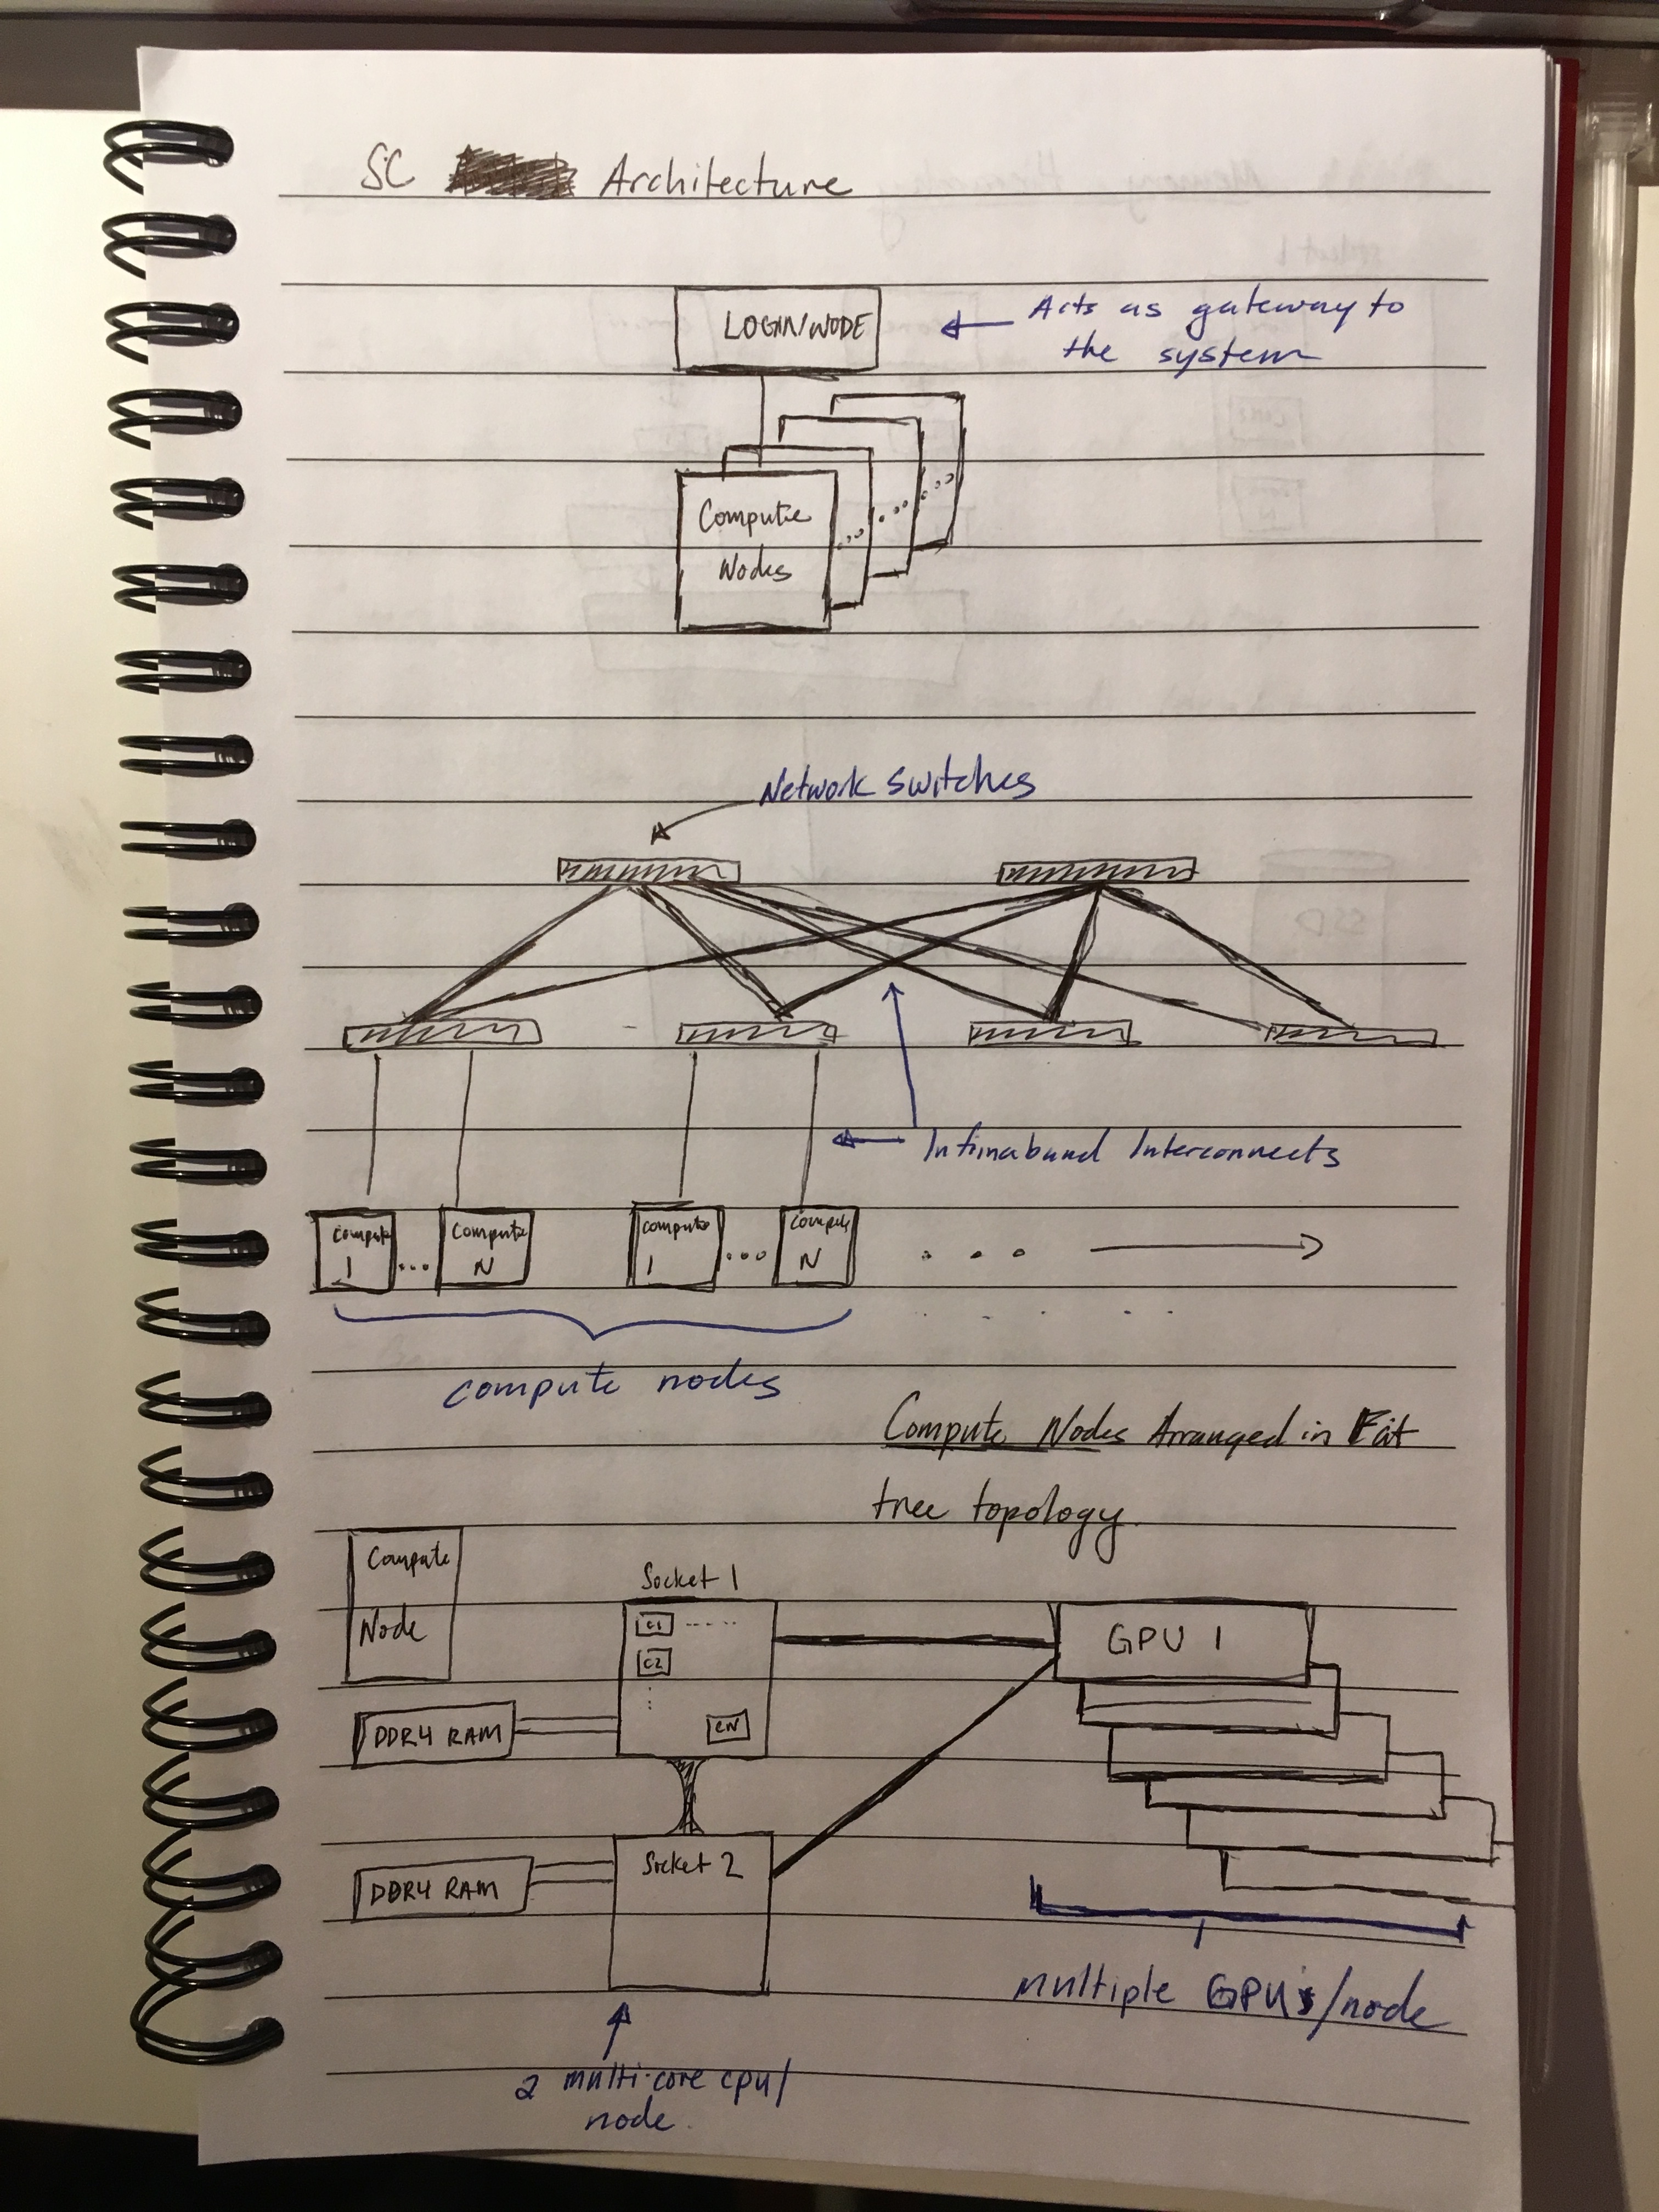 SC Architecture
LOGIN/NODE
Acts as gateway to
the system
Compute
Nodes
Network Switches
Infinaband Interconnects
Compute
1
...
Compute
N
Compute
1
...
Compute
N
...
compute nodes
Compute Nodes Arranged in Fat
tree topology.
Compute
Node
Socket 1
C1
C2
CN
GPU 1
DDR4 RAM
Socket 2
DDR4 RAM
multiple GPU's/node
2 multi-core cpu/
node.